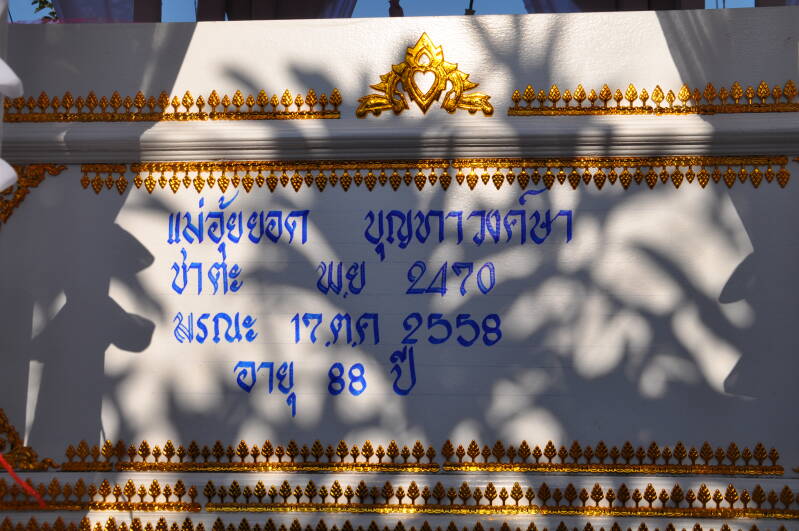 แม่อุ้ยยอด บุญทาวงค์ษา
ชาตะ พ.ย 2470
มรณะ 17.ต.ค 2558
อายุ 88 ปี